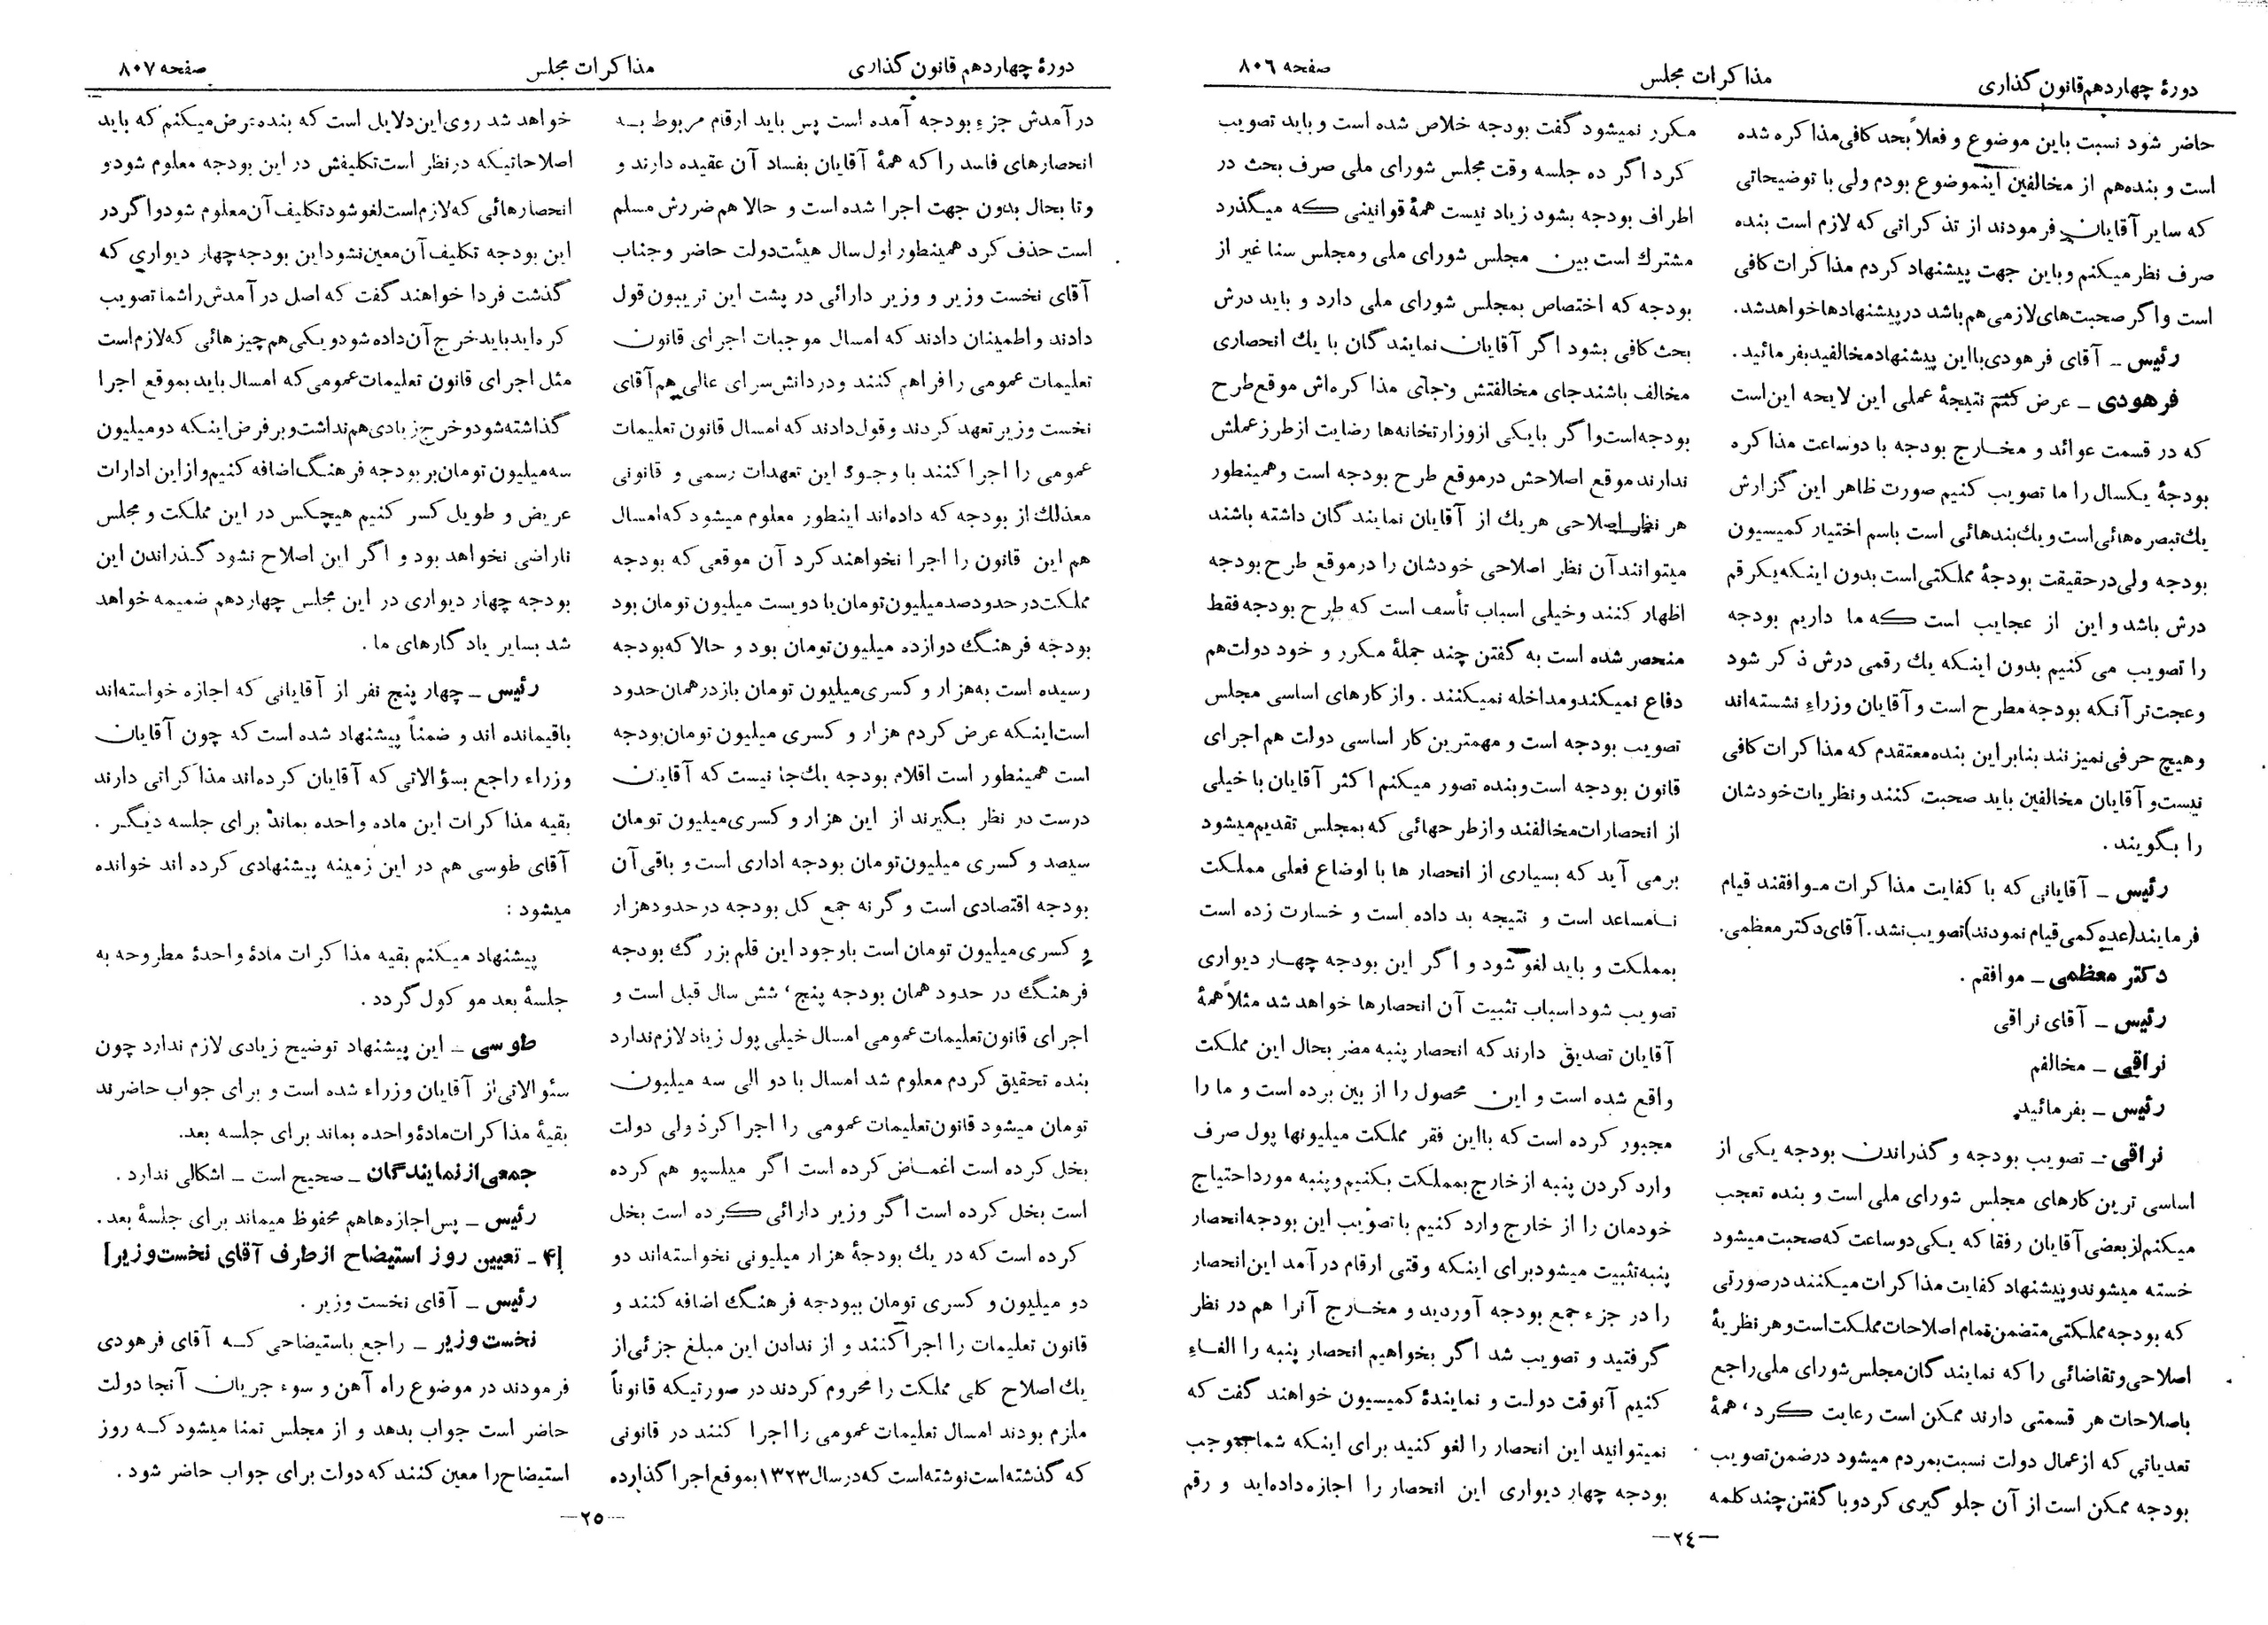 دورهٔ چهاردهم قانون گذاری
مذاکرات مجلس
صفحه ۸۰۶
حاضر شود نسبت باین موضوع و فعلاً بحد کافی مذاکره شده
است و بنده هم از مخالفین اینموضوع بودم ولی با توضیحاتی
که سایر آقایان فرمودند از تذکراتی که لازم است بنده
صرف نظر میکنم و باین جهت پیشنهاد کردم مذاکرات کافی
است و اگر صحبت‌های لازمی هم باشد در پیشنهادها خواهد شد.
رئیس – آقای فرهودی با این پیشنهاد مخالفید بفرمائید.
فرهودی – عرض کنم نتیجهٔ عملی این لایحه این است
که در قسمت عوائد و مخارج بودجه با دو ساعت مذاکره
بودجهٔ یکسال را ما تصویب کنیم صورت ظاهر این گزارش
یك تبصره‌هائی است و یك بندهائی است باسم اختیار کمیسیون
بودجه ولی در حقیقت بودجهٔ مملکتی است بدون اینکه یکرقم
درش باشد و این از عجایب است که ما داریم بودجه
را تصویب می کنیم بدون اینکه یك رقمی درش ذکر شود
و عجب‌تر آنکه بودجه مطرح است و آقایان وزراء نشسته‌اند
و هیچ حرفی نمیزنند بنابراین بنده معتقدم که مذاکرات کافی
نیست و آقایان مخالفین باید صحبت کنند و نظریات خودشان
را بگویند.
رئیس – آقایانی که با کفایت مذاکرات موافقند قیام
فرمایند (عده کمی قیام نمودند) تصویب نشد. آقای دکتر معظمی.
دکتر معظمی – موافقم.
رئیس – آقای نراقی
نراقی – مخالفم
رئیس – بفرمائید
نراقی – تصویب بودجه و گذراندن بودجه یکی از
اساسی ترین کارهای مجلس شورای ملی است و بنده تعجب
میکنم از بعضی آقایان رفقا که یکی دو ساعت که صحبت میشود
خسته میشوند و پیشنهاد کفایت مذاکرات میکنند در صورتی
که بودجه مملکتی متضمن تمام اصلاحات مملکت است و هر نظریهٔ
اصلاحی و تقاضائی را که نمایندگان مجلس شورای ملی راجع
باصلاحات هر قسمتی دارند ممکن است رعایت کرد، همهٔ
تعدیاتی که از عمال دولت نسبت بمردم میشود در ضمن تصویب
بودجه ممکن است از آن جلوگیری کرد و با گفتن چند کلمه
مکرر نمیشود گفت بودجه خلاص شده است و باید تصویب
کرد اگر ده جلسه وقت مجلس شورای ملی صرف بحث در
اطراف بودجه بشود زیاد نیست همهٔ قوانینی که میگذرد
مشترك است بین مجلس شورای ملی و مجلس سنا غیر از
بودجه که اختصاص بمجلس شورای ملی دارد و باید درش
بحث کافی بشود اگر آقایان نمایندگان با یك انحصاری
مخالف باشند جای مخالفتش و جای مذاکره‌اش موقع طرح
بودجه است و اگر با یکی از وزارتخانه‌ها رضایت از طرز عملش
ندارند موقع اصلاحش در موقع طرح بودجه است و همینطور
هر نظر اصلاحی هر یك از آقایان نمایندگان داشته باشند
میتوانند آن نظر اصلاحی خودشان را در موقع طرح بودجه
اظهار کنند و خیلی اسباب تأسف است که طرح بودجه فقط
منحصر شده است به گفتن چند جملهٔ مکرر و خود دولت هم
دفاع نمیکند و مداخله نمیکنند. و از کارهای اساسی مجلس
تصویب بودجه است و مهمترین کار اساسی دولت هم اجرای
قانون بودجه است و بنده تصور میکنم اکثر آقایان با خیلی
از انحصارات مخالفند و از طرحهائی که بمجلس تقدیم میشود
برمی آید که بسیاری از انحصار ها با اوضاع فعلی مملکت
نامساعد است و نتیجه بد داده است و خسارت زده است
بمملکت و باید لغو شود و اگر این بودجه چهار دیواری
تصویب شود اسباب تثبیت آن انحصارها خواهد شد مثلاً همهٔ
آقایان تصدیق دارند که انحصار پنبه مضر بحال این مملکت
واقع شده است و این محصول را از بین برده است و ما را
مجبور کرده است که با این فقر مملکت میلیونها پول صرف
وارد کردن پنبه از خارج بمملکت بکنیم و پنبه مورد احتیاج
خودمان را از خارج وارد کنیم با تصویب این بودجه انحصار
پنبه تثبیت میشود برای اینکه وقتی ارقام درآمد این انحصار
را در جزء جمع بودجه آوردید و مخارج آنرا هم در نظر
گرفتید و تصویب شد اگر بخواهیم انحصار پنبه را الغاء
کنیم آنوقت دولت و نمایندهٔ کمیسیون خواهند گفت که
نمیتوانید این انحصار را لغو کنید برای اینکه شما بموجب
بودجه چهار دیواری این انحصار را اجازه داده‌اید و رقم
—۲٤—
دورهٔ چهاردهم قانون گذاری
مذاکرات مجلس
صفحه ۸۰۷
درآمدش جزء بودجه آمده است پس باید ارقام مربوط به
انحصارهای فاسد را که همهٔ آقایان بفساد آن عقیده دارند و
و تا بحال بدون جهت اجرا شده است و حالا هم ضررش مسلم
است حذف کرد همینطور اول سال هیئت دولت حاضر و جناب
آقای نخست وزیر و وزیر دارائی در پشت این تریبون قول
دادند و اطمینان دادند که امسال موجبات اجرای قانون
تعلیمات عمومی را فراهم کنند و در دانش‌سرای عالی هم آقای
نخست وزیر تعهد کردند و قول دادند که امسال قانون تعلیمات
عمومی را اجرا کنند با وجود این تعهدات رسمی و قانونی
معذلك از بودجه که داده‌اند اینطور معلوم میشود که امسال
هم این قانون را اجرا نخواهند کرد آن موقعی که بودجه
مملکت در حدود صد میلیون تومان یا دویست میلیون تومان بود
بودجه فرهنگ دوازده میلیون تومان بود و حالا که بودجه
رسیده است به هزار و کسری میلیون تومان باز در همان حدود
است اینکه عرض کردم هزار و کسری میلیون تومان بودجه
است همینطور است اقلام بودجه یك جا نیست که آقایان
درست در نظر بگیرند از این هزار و کسری میلیون تومان
سیصد و کسری میلیون تومان بودجه اداری است و باقی آن
بودجه اقتصادی است و گرنه جمع کل بودجه در حدود هزار
و کسری میلیون تومان است باوجود این قلم بزرگ بودجه
فرهنگ در حدود همان بودجه پنج، شش سال قبل است و
اجرای قانون تعلیمات عمومی امسال خیلی پول زیاد لازم ندارد
بنده تحقیق کردم معلوم شد امسال با دو الی سه میلیون
تومان میشود قانون تعلیمات عمومی را اجرا کرد ولی دولت
بخل کرده است اغماض کرده است اگر میلسپو هم کرده
است بخل کرده است اگر وزیر دارائی کرده است بخل
کرده است که در یك بودجهٔ هزار میلیونی نخواسته‌اند دو
دو میلیون و کسری تومان ببودجه فرهنگ اضافه کنند و
قانون تعلیمات را اجرا کنند و از ندادن این مبلغ جزئی از
یك اصلاح کلی مملکت را محروم کردند در صورتیکه قانوناً
ملزم بودند امسال تعلیمات عمومی را اجرا کنند در قانونی
که گذشته است نوشته است که در سال ۱۳۲۳ بموقع اجرا گذارده
خواهد شد روی این دلایل است که بنده عرض میکنم که باید
اصلاحاتیکه در نظر است تکلیفش در این بودجه معلوم شود و
انحصارهائی که لازم است لغو شود تکلیف آن معلوم شود و اگر در
این بودجه تکلیف آن معین نشود این بودجه چهار دیواری که
گذشت فردا خواهند گفت که اصل درآمدش را شما تصویب
کرده‌اید باید خرج آن داده شود و یکی هم چیزهائی که لازم است
مثل اجرای قانون تعلیمات عمومی که امسال باید بموقع اجرا
گذاشته شود و خرج زیادی هم نداشت و بر فرض اینکه دو میلیون
سه میلیون تومان بر بودجه فرهنگ اضافه کنیم و از این ادارات
عریض و طویل کسر کنیم هیچکس در این مملکت و مجلس
ناراضی نخواهد بود و اگر این اصلاح نشود گذراندن این
بودجه چهار دیواری در این مجلس چهاردهم ضمیمه خواهد
شد بسایر یادگارهای ما.
رئیس – چهار پنج نفر از آقایانی که اجازه خواسته‌اند
باقیمانده اند و ضمناً پیشنهاد شده است که چون آقایان
وزراء راجع بسؤالاتی که آقایان کرده‌اند مذاکراتی دارند
بقیه مذاکرات این ماده واحده بماند برای جلسه دیگر.
آقای طوسی هم در این زمینه پیشنهادی کرده اند خوانده
میشود:
پیشنهاد میکنم بقیه مذاکرات مادهٔ واحدهٔ مطروحه به
جلسهٔ بعد موکول گردد.
طوسی – این پیشنهاد توضیح زیادی لازم ندارد چون
سئوالاتی از آقایان وزراء شده است و برای جواب حاضرند
بقیهٔ مذاکرات مادهٔ واحده بماند برای جلسه بعد.
جمعی از نمایندگان – صحیح است – اشکالی ندارد.
رئیس – پس اجازه‌ها هم محفوظ میماند برای جلسهٔ بعد.
[۴ – تعیین روز استیضاح از طرف آقای نخست وزیر]
رئیس – آقای نخست وزیر.
نخست وزیر – راجع باستیضاحی که آقای فرهودی
فرمودند در موضوع راه آهن و سوء جریان آنجا دولت
حاضر است جواب بدهد و از مجلس تمنا میشود که روز
استیضاح را معین کنند که دولت برای جواب حاضر شود.
—۲۵—